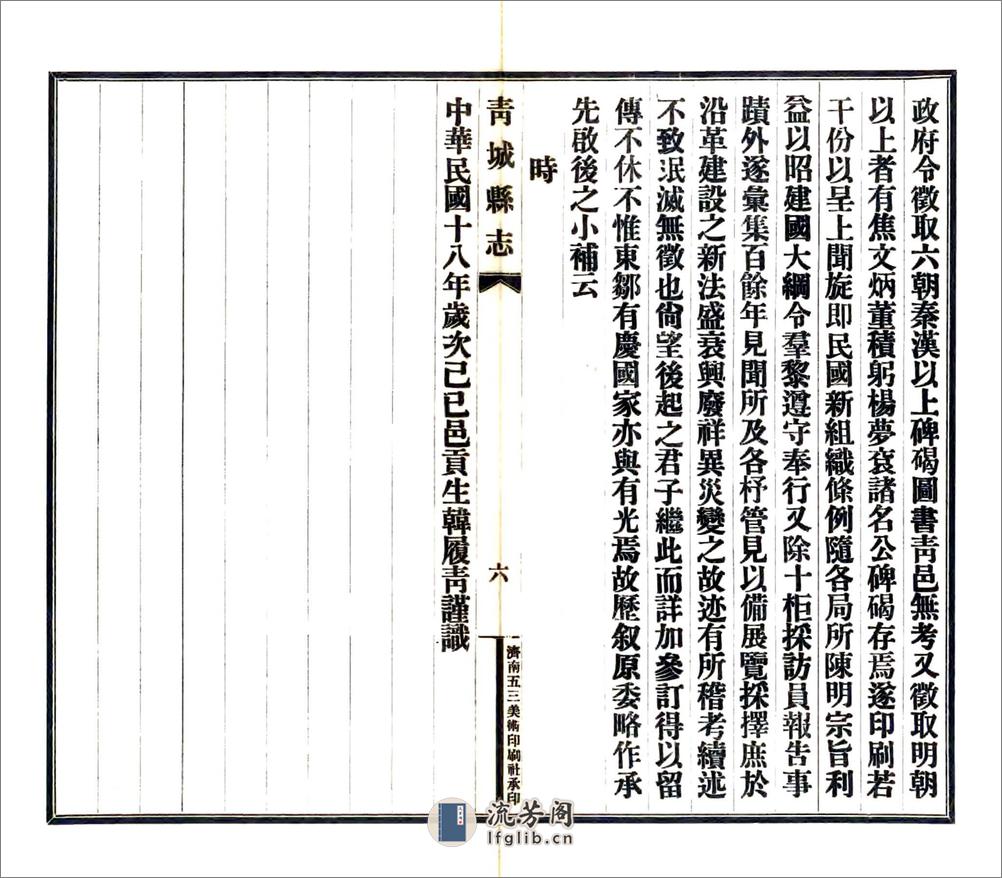 政府令徵取六朝秦漢以上碑碣圖書靑邑無考又徵取明朝
以上者有焦文炳董積躬楊夢袞諸名公碑碣存焉遂印刷若
干份以呈上聞旋即民國新組織條例隨各局所陳明宗旨利
益以昭建國大綱令羣黎遵守奉行又除十柜採訪員報告事
蹟外遂彙集百餘年見聞所及各杼管見以備展覽採擇庶於
沿革建設之新法盛衰興廢祥異災變之故迹有所稽考續述
不致泯滅無徵也尙望後起之君子繼此而詳加參訂得以留
傳不休不惟東鄒有慶國家亦與有光焉故歷叙原委略作承
先啟後之小補云
時
靑城縣志
六
濟南五三美術印刷社承印
中華民國十八年歲次己巳邑貢生韓履靑謹識
流芳阁
lfglib.cn